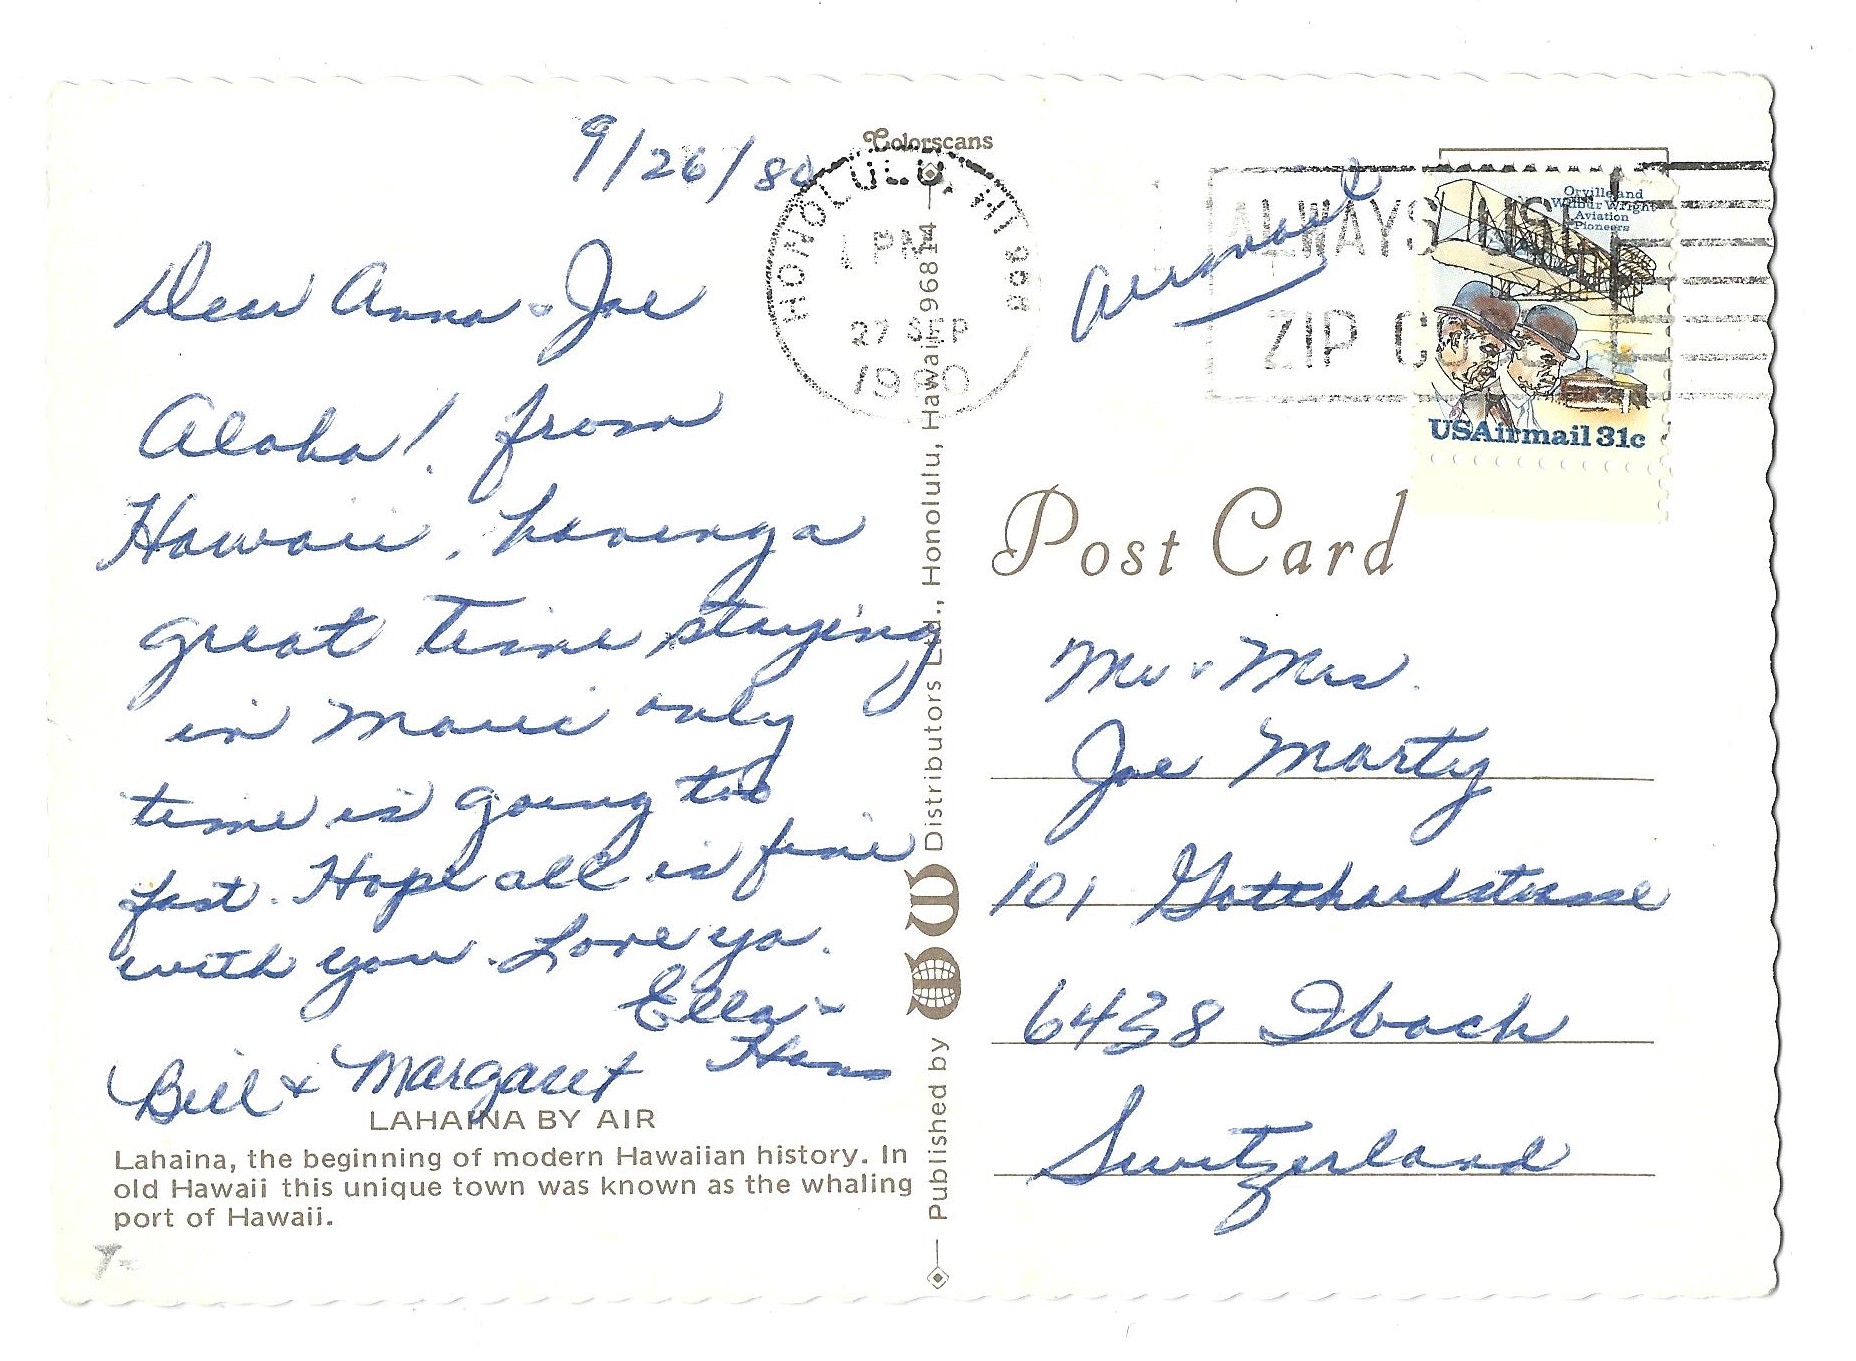 9/26/80
Dear Anna & Joe
Aloha! from
Hawaii, having a
great time staying
in Maui only
time is going too
fast. Hope all is fine
with you. Love ya.
Ella &
Hans
Bill & Margaret
LAHAINA BY AIR
Lahaina, the beginning of modern Hawaiian history. In
old Hawaii this unique town was known as the whaling
port of Hawaii.
Colorscans
Published by W W Distributors Ltd., Honolulu, Hawaii 96814
HONOLULU, HI 968
1 PM
27 SEP
1980
Airmail
ALWAYS USE
ZIP CODE
Orville and
Wilbur Wright
Aviation
Pioneers
USAirmail 31c
Post Card
Mr & Mrs.
Joe Marty
101 Gotthardstrasse
6438 Ibach
Switzerland